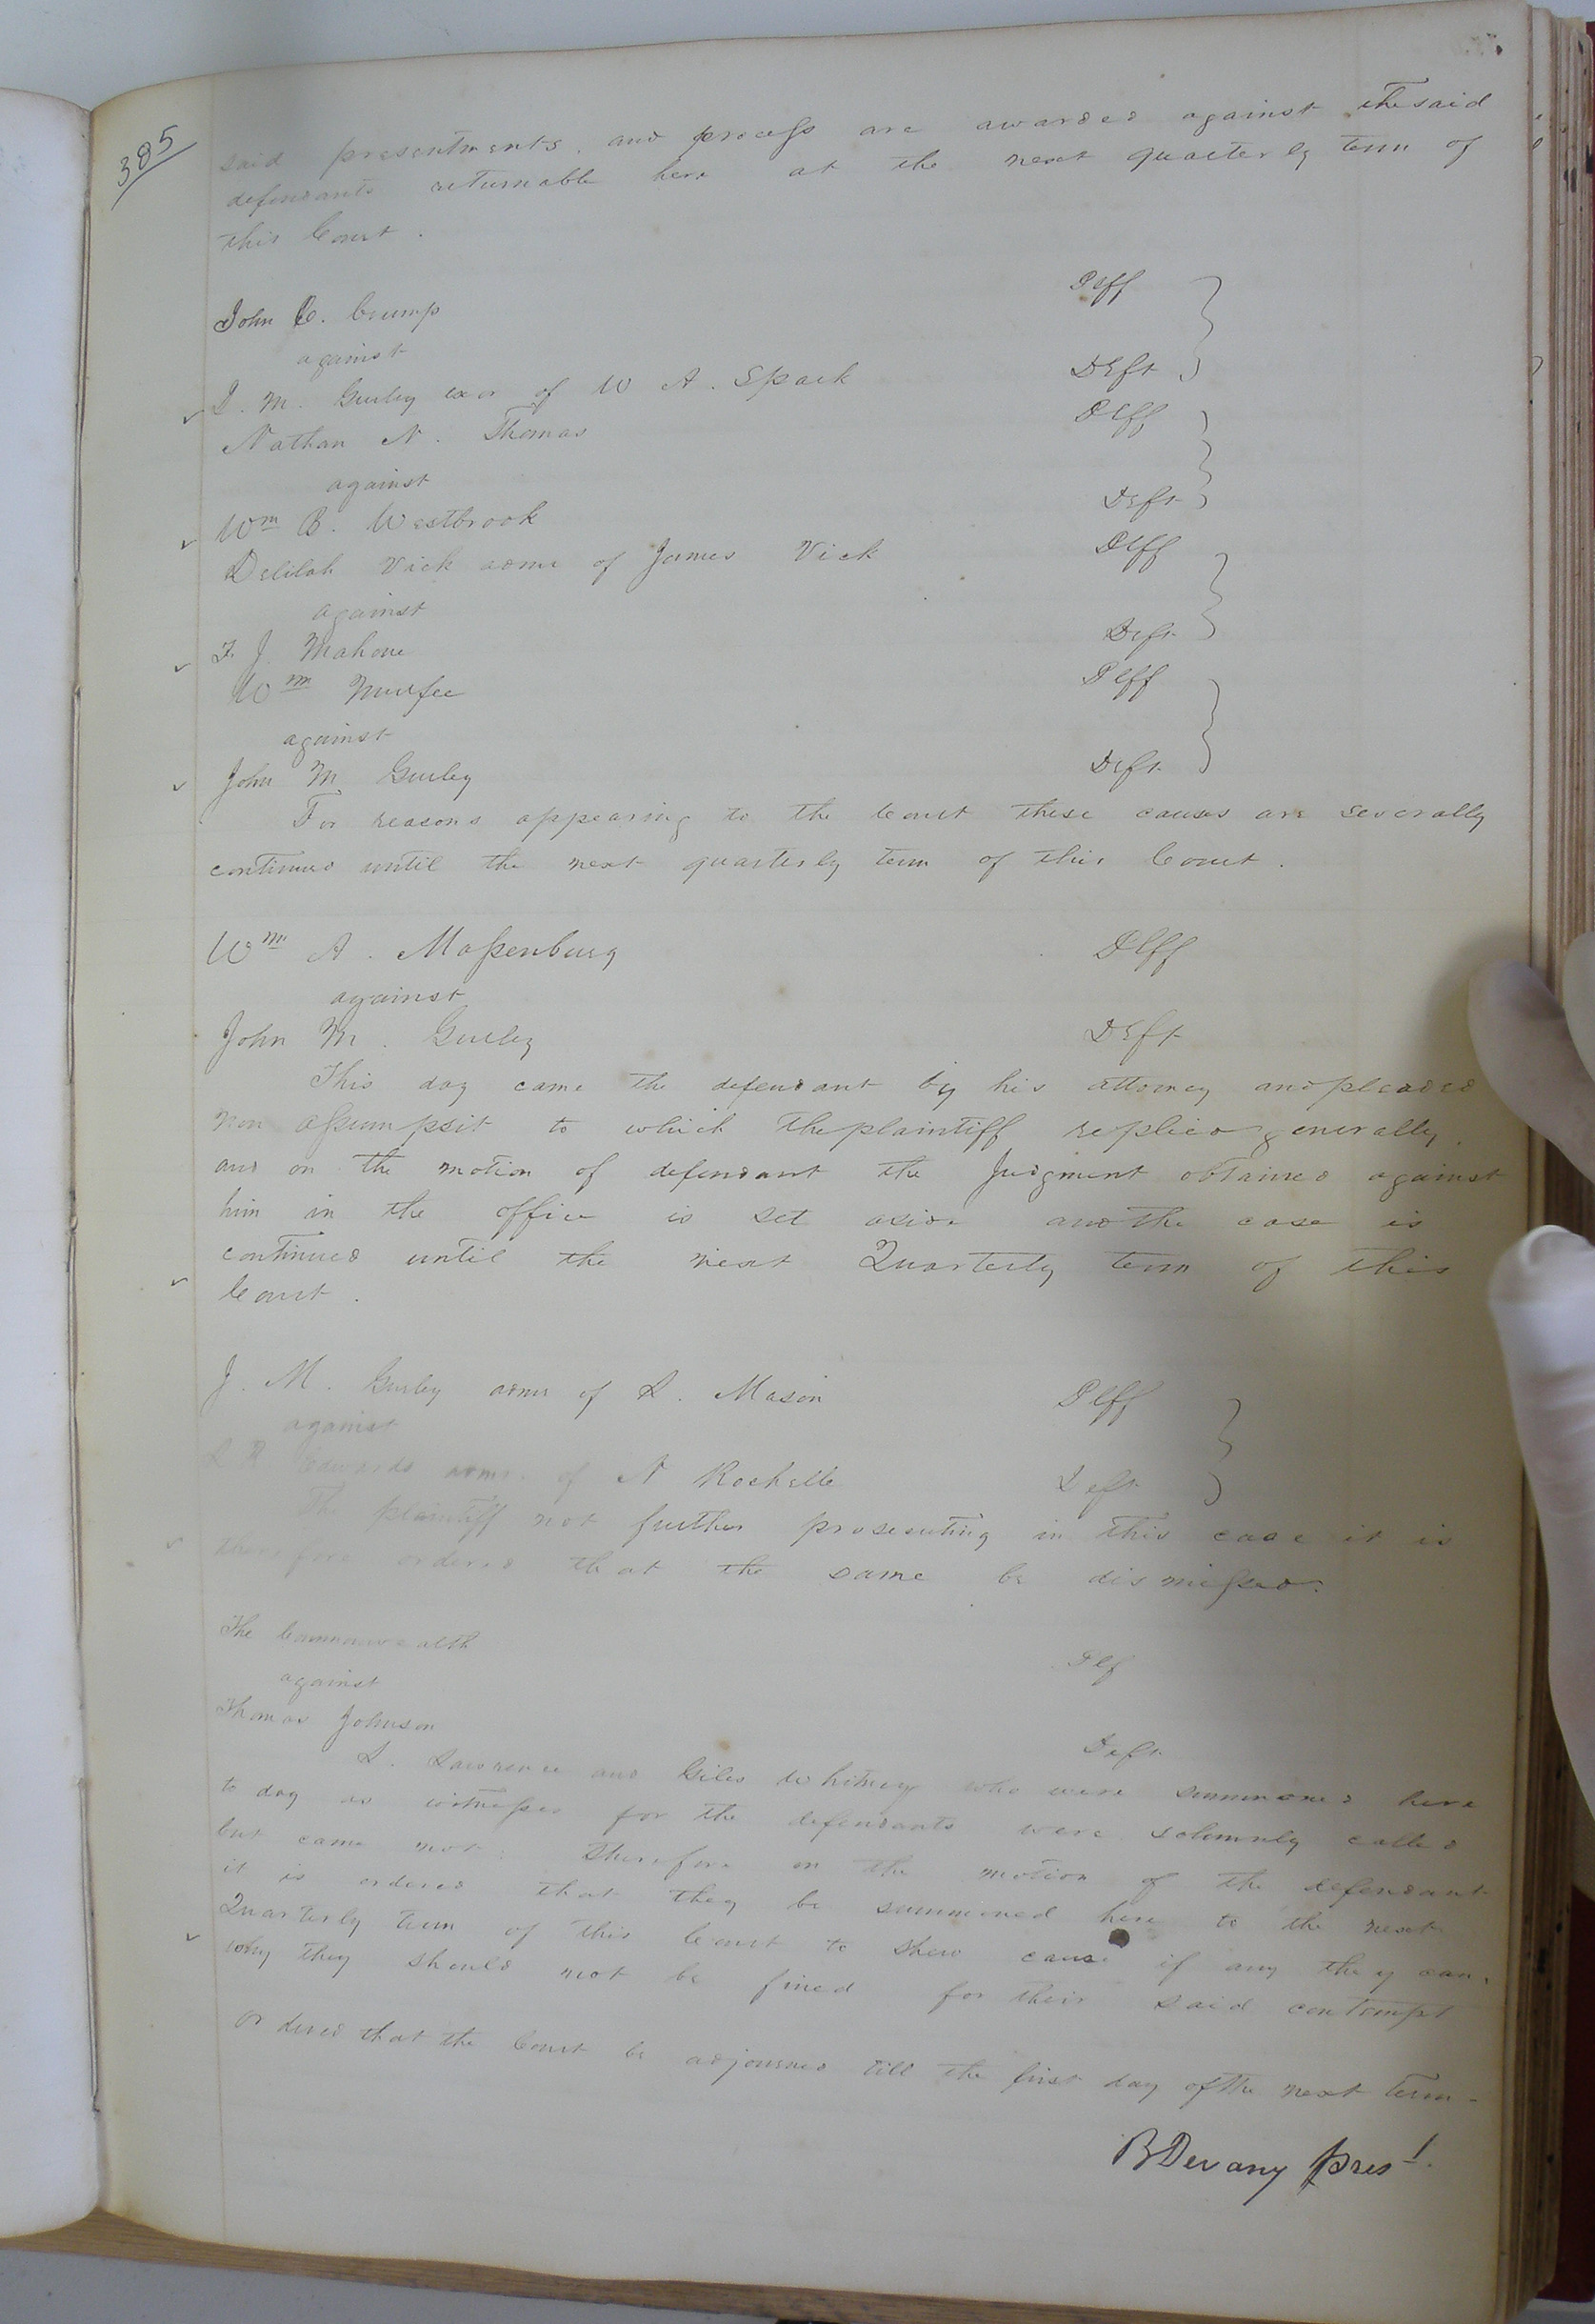 385
said presentments, and process are awarded against the said
defendants returnable here at the next quarterly term of
this Court.
John C. Crump Plff
against
J. M. Gurley exor of W A. Spark Deft
Nathan N. Thomas Plff
against
Wm B. Westbrook Deft
Delilah Vick admx of James Vick Plff
against
F. J. Mahone Deft
Wm Murfee Plff
against
John M Gurley Deft
For reasons appearing to the Court these causes are severally
continued until the next quarterly term of this Court.
Wm A. Massenburg Plff
against
John M. Gurley Deft
This day came the defendant by his attorney and pleaded
non assumpsit to which the plaintiff replied generally,
and on the motion of defendant the Judgment obtained against
him in the office is set aside and the case is
continued until the next Quarterly term of this
Court.
J. M. Gurley admr of L. Mason Plff
against
L R. Edwards admr. of N Rochelle Deft
The plaintiff not further prosecuting in this case it is
therefore ordered that the same be dismissed.
The Commonwealth Plf
against
Thomas Johnson Deft
L. Lawrence and Giles Whitney who were summoned here
to day as witnesses for the defendants were solemnly called
but came not: Therefore on the motion of the defendant
it is ordered that they be summoned here to the next
Quarterly term of this Court to shew cause if any they can,
why they should not be fined for their said contempt
Ordered that the Court be adjourned till the first day of the next term -
B Devany Prest.